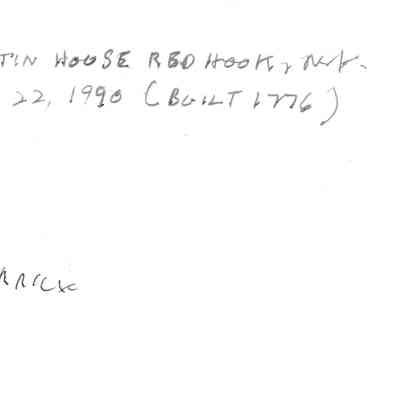 TIN HOUSE RED HOOK, N.Y.
22, 1990 (BUILT 1776)
BRICK